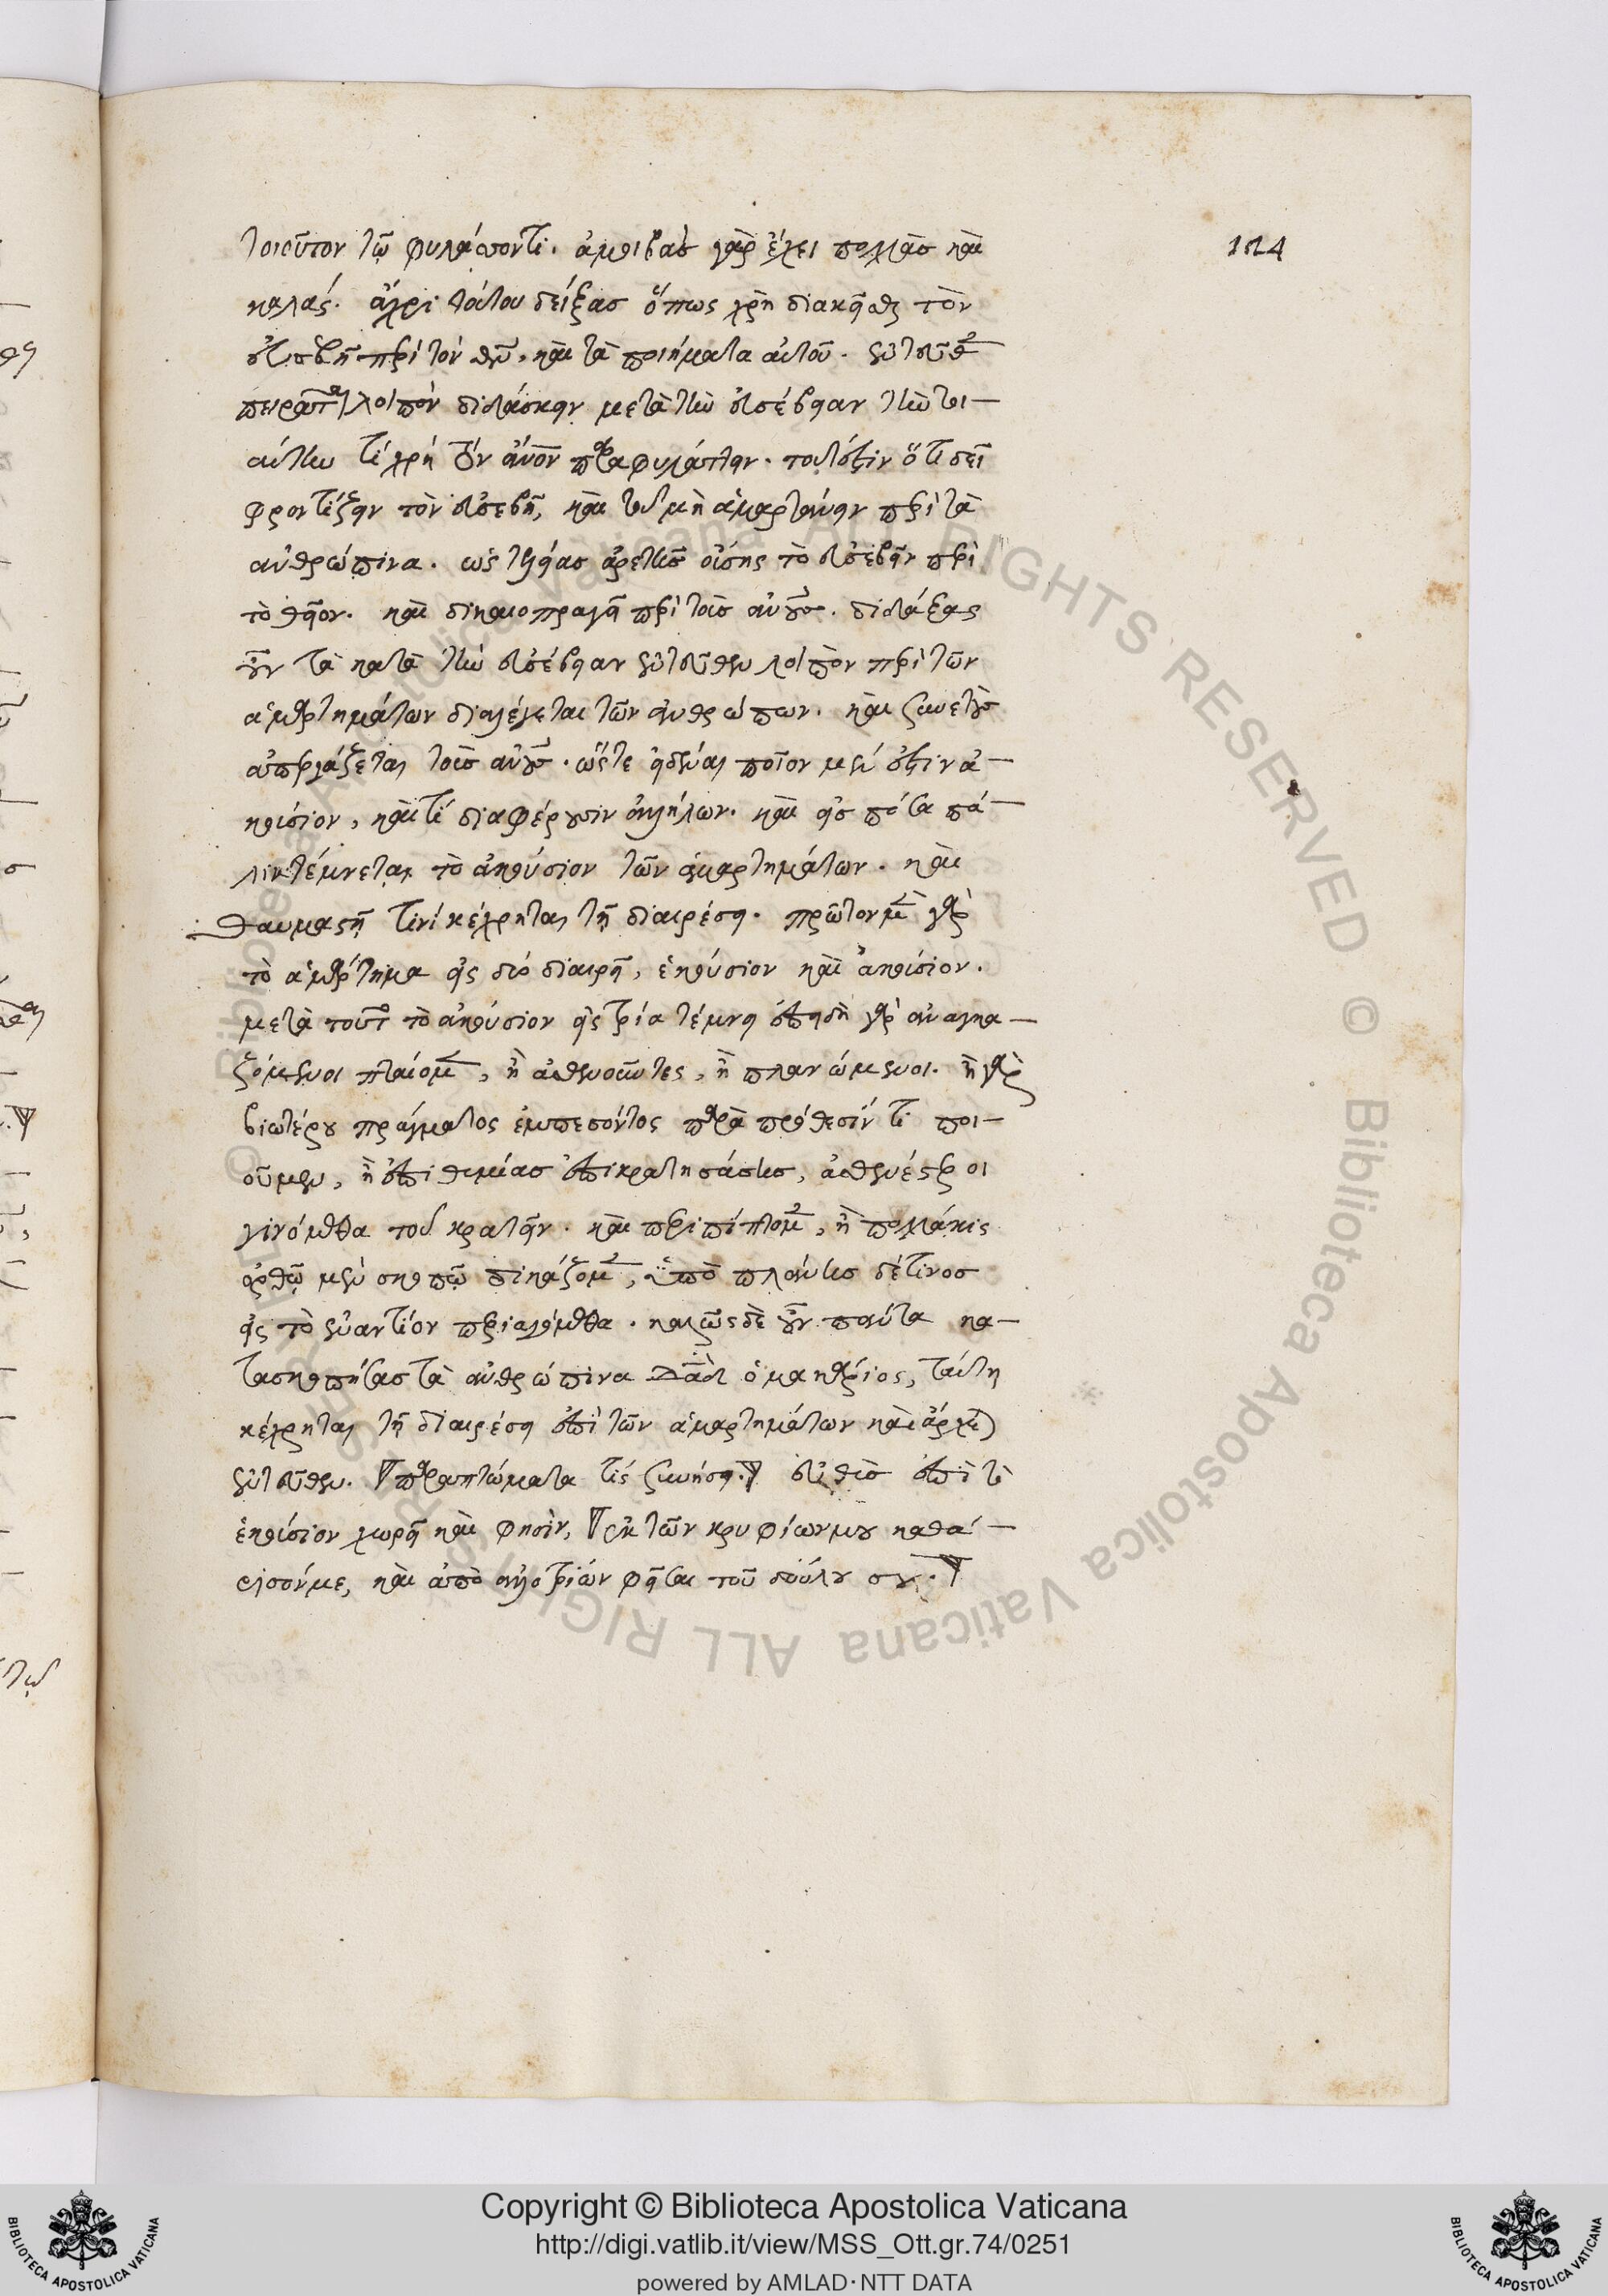 τοιοῦτον τῷ φυλάττοντι. ἀμοιβὰς γὰρ ἔχει πολλὰς καὶ
124
καλάς. ἄχρι τούτου δείξας ὅπως χρὴ διακεῖσθαι τὸν
εὐσεβῆ περὶ τὸν θν̅, καὶ τὰ ποιήματα αὐτοῦ. ἐντεῦθεν
πειρᾶται λοιπὸν διδάσκειν μετὰ τὴν εὐσέβειαν τὴν τοι—
αύτην τί χρὴ τὸν ἄνον παραφυλάττειν. τουτέστιν ὅτι δεῖ
φροντίζειν τὸν εὐσεβῆ, καὶ τοῦ μὴ ἁμαρτάνειν περὶ τὰ
ἀνθρώπινα. ὡς τελείας ἀρετῆς οὔσης τὸ εὐσεβεῖν περὶ
τὸ θεῖον. καὶ δικαιοπραγεῖν περὶ τοὺς ἀνους. διδάξας
οὖν τὰ κατὰ τὴν εὐσέβειαν ἐντεῦθεν λοιπὸν περὶ τῶν
ἁμαρτημάτων διαλέγεται τῶν ἀνθρώπων. καὶ συνετοὺς
ἀπεργάζεται τοὺς ἀνους. ὥστε εἰδέναι ποῖον μὲν ἐστὶν ἀ—
κούσιον, καὶ τί διαφέρουσιν ἀλλήλων. καὶ εἰς πόσα πά—
λιν τέμνεται τὸ ἀκούσιον τῶν ἁμαρτημάτων. καὶ
θαυμαστῇ τινὶ κέχρηται τῇ διαιρέσει. πρῶτον μὲν γὰρ
τὸ ἁμάρτημα εἰς δύο διαιρεῖ, ἑκούσιον καὶ ἀκούσιον.
μετὰ τοῦτο τὸ ἀκούσιον εἰς τρία τέμνει ἐπειδὴ γὰρ ἀναγκα—
ζόμενοι πταίομεν, ἢ ἀσθενοῦντες, ἢ πλανώμενοι. ἢ γὰρ
βιωτέρου πράγματος ἐμπεσόντος παρὰ πρόθεσίν τι ποι—
οῦμεν, ἢ ἐπιθυμίας ἐπικρατησάσης, ἀσθενέστεροι
γινόμεθα τοῦ κρατεῖν. καὶ περιπίπτομεν, ἢ πολλάκις
ὀρθῷ μὲν σκοπῷ δικάζομεν, ὑπὸ πλάνης δέ τινος
εἰς τὸ ἐναντίον περιαγόμεθα. καλῶς δὲ οὖν πάντα κα—
τασκοπήσας τὰ ἀνθρώπινα Δα̅δ ὁ μακάριος, ταύτῃ
κέχρηται τῇ διαιρέσει ἐπὶ τῶν ἁμαρτημάτων καὶ ἄρχεται
ἐντεῦθεν. παραπτώματα τίς συνήσει. εὐθὺς ἐπὶ τὸ
ἑκούσιον χωρεῖ καὶ φησὶν, ἐκ τῶν κρυφίων μου καθά—
ρισόν με, καὶ ἀπὸ ἀλλοτρίων φεῖσαι τοῦ δούλου σου.